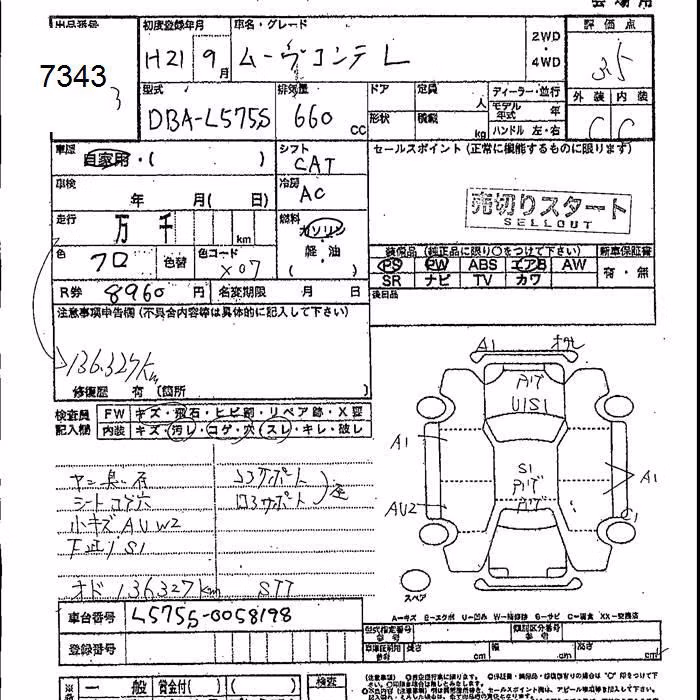 会場用
出品番号 初度登録年月 車名・グレード 評価点
7343 H21 9月 ムーヴコンテ L 2WD ・ 4WD 3.5
3
型式 排気量 ドア 定員 人 ディーラー・並行 外装 内装
DBA-L575S 660 CC 形状 積載 kg モデル年式 年 C C
ハンドル 左・右
車歴 自家用・( ) シフト CAT セールスポイント (正常に機能するものに限ります)
車検 年 月( 日) 冷房 AC
売切りスタート
SELLOUT
走行 万 千 km 燃料 ガソリン
軽・油
( )
色 クロ 色替 色コード X07
装備品 (純正品に限り○をつけて下さい) 新車保証書
PS PW ABS エアB AW 有・無
SR ナビ TV カワ
R券 8960 円 名変期限 月 日 後日品
注意事項申告欄 (不具合内容等は具体的に記入して下さい)
136.327Km
修復歴 有 (箇所 )
検査員 FW キズ・飛石・ヒビ割・リペア跡・X要
記入欄 内装 キズ・汚レ・コゲ・穴・スレ・キレ・破レ
A1
アリブ
U1S1
A1 S1 A1
アリブ
アリブ
AU2 C1
ヤニ臭い有
シートコゲ穴
小キズAUW2
下廻りS1
オド136327km STT
スペア
A=キズ E=エクボ U=凹み W=補修跡 S=サビ C=腐食 XX=交換済
車台番号 L575S-0058198
登録番号
型式指定番号 類別区分番号
長さ cm 幅 cm 高さ cm
一般 賞金付( ) ( ) 検査